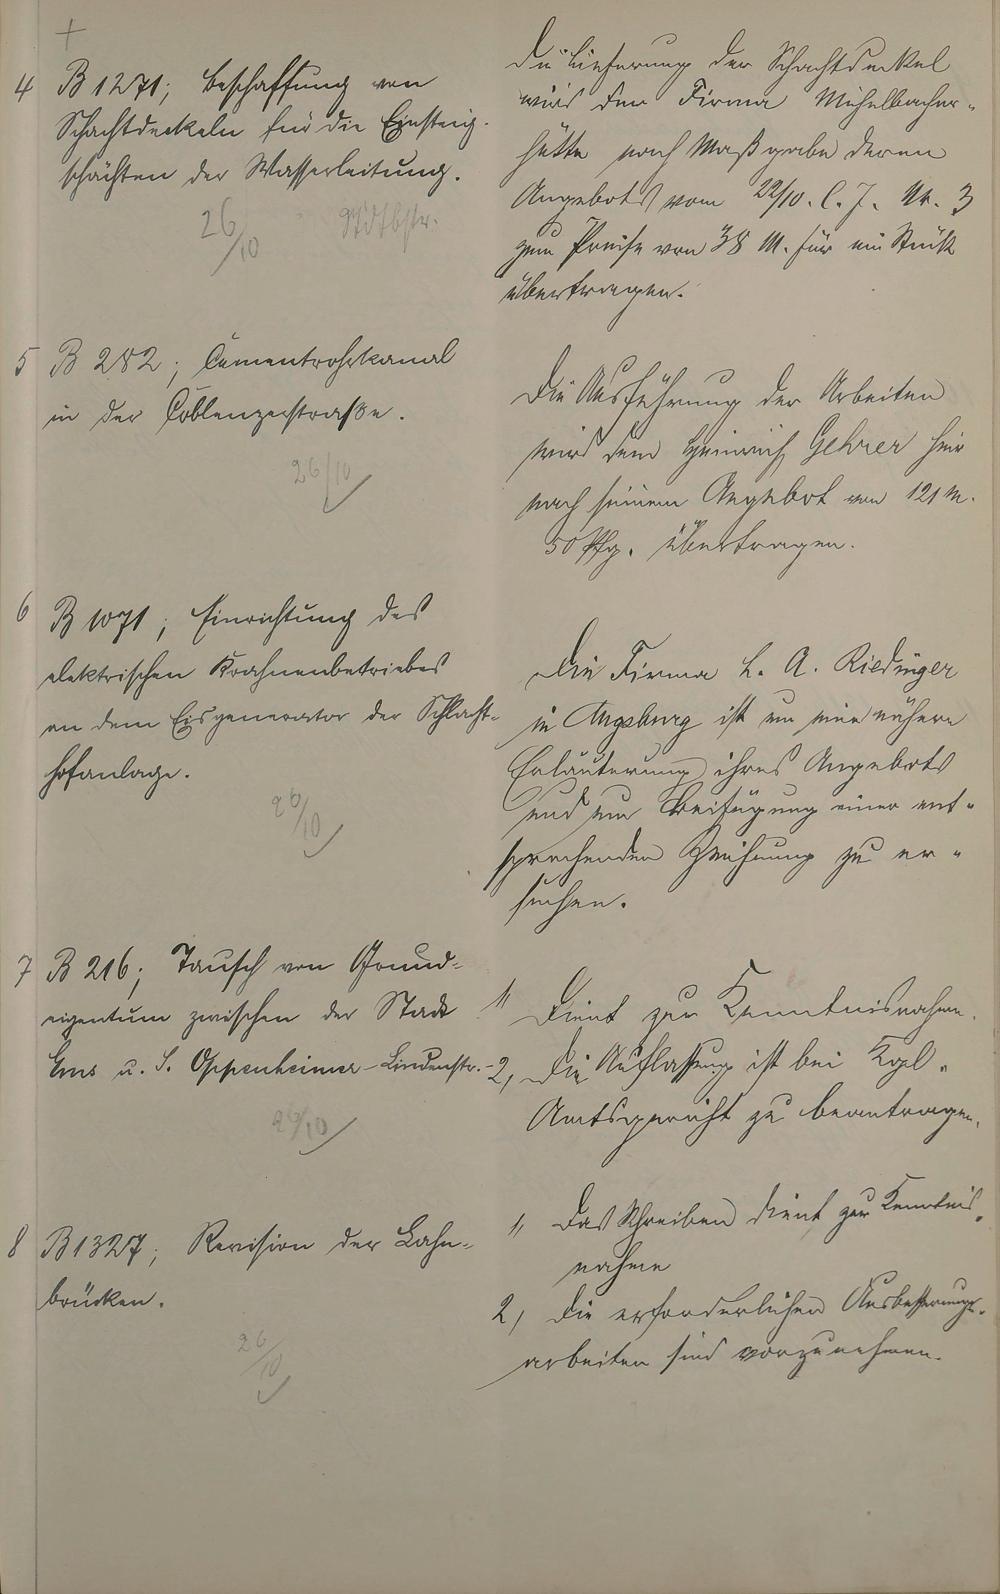 4 B 1271; Beschaffung von
Schachtdeckeln für die Einsteig-
schächten der Wasserleitung.
26/10 Stdtbstr.
Die Lieferung der Schachtdeckel
wird der Firma Michelbacher-
hütte nach Maßgabe deren
Angebots vom 22/10. l. J. Nr. 3
zum Preise von 38 M. für ein Stück
übertragen.
5 B 282; Cementrohrkanal
in der Coblenzerstraße.
26/10
Die Ausführung der Arbeiten
wird dem Heinrich Gehrer hier
nach seinem Angebot von 121 M.
50 Pfg. übertragen.
6 B 1071; Einrichtung des
elektrischen Krahnenbetriebes
an dem Eisgenerator der Schlacht-
hofanlage.
26/10
Die Firma L. A. Riedinger
in Augsburg ist um eine nähere
Erläuterung ihres Angebots
und um Beifügung einer ent-
sprechenden Zeichnung zu er-
suchen.
7 B 216; Tausch von Grund-
eigentum zwischen der Stadt
Ems u. S. Oppenheimer - Lindenstr. -
26/10
1, Dient zur Kenntnisnahme.
2, Die Auflassung ist bei Kgl.
Amtsgericht zu beantragen.
8 B 1327; Revision der Lahn-
brücken.
26/10
1, Das Schreiben dient zur Kenntnis-
nahme
2, Die erforderlichen Ausbesserungs-
arbeiten sind vorzunehmen.